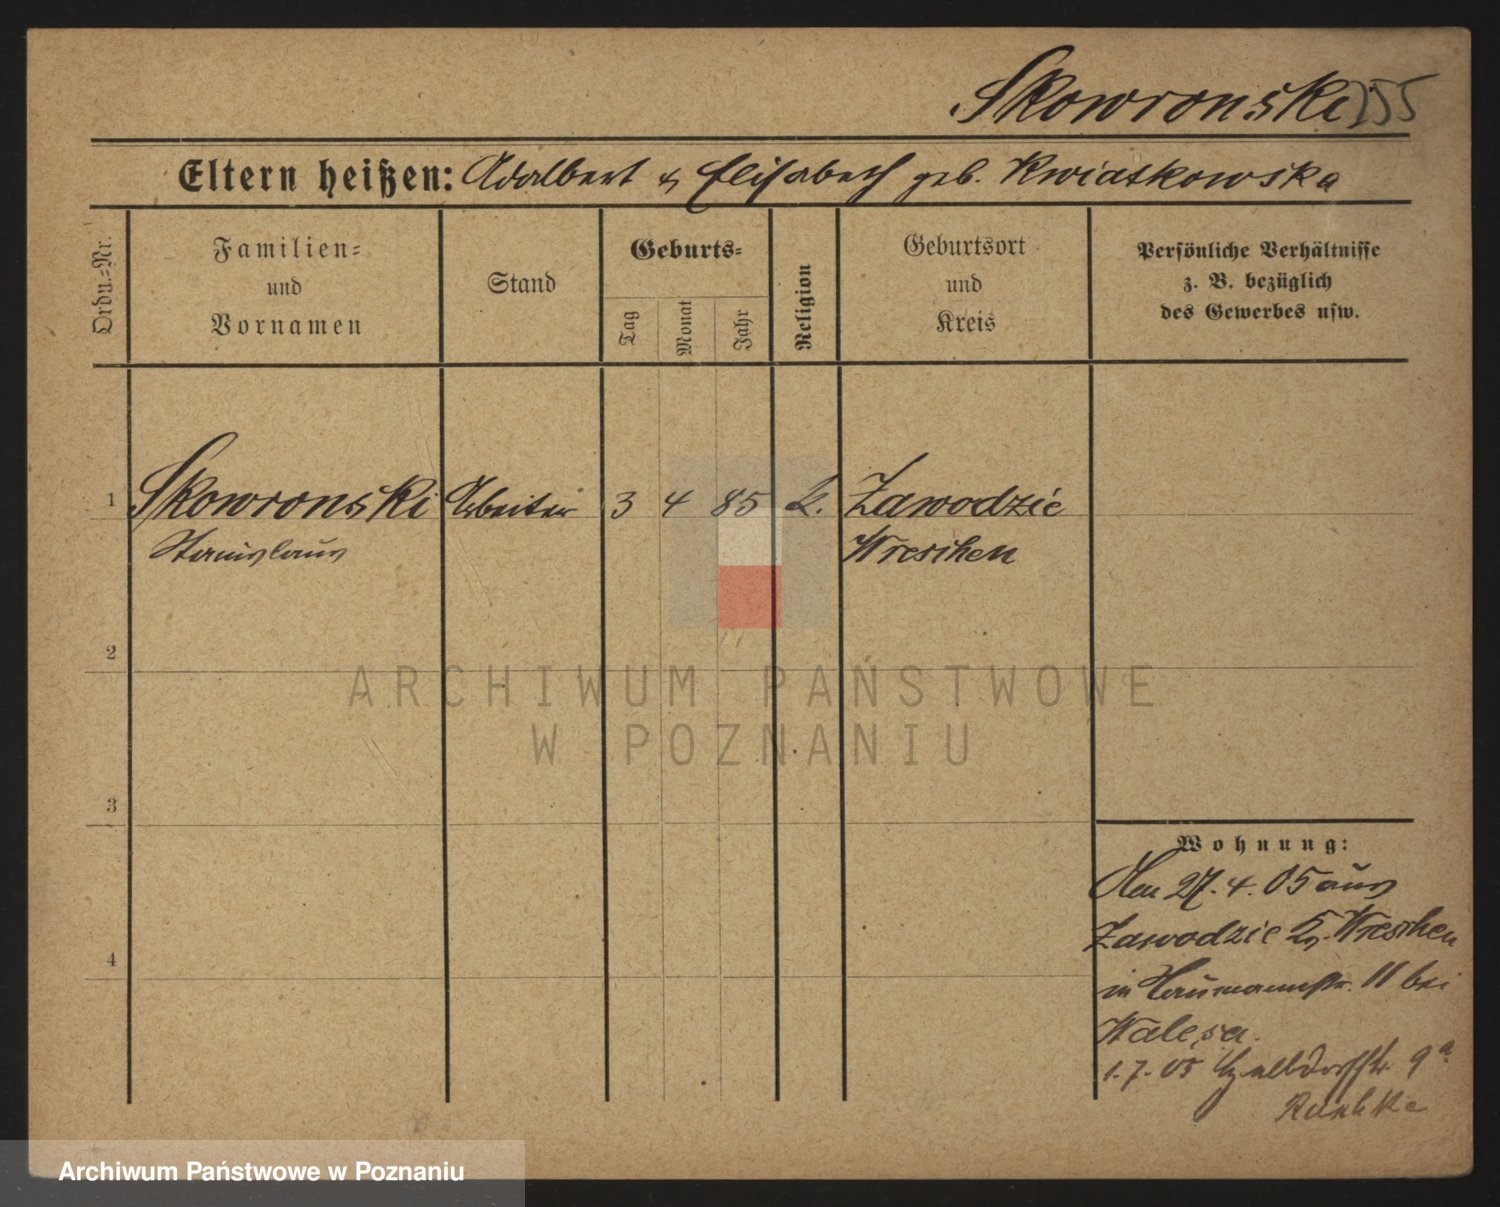 Skowronski 255
Eltern heißen: Adalbert & Elisabeth geb. Kwiatkowska
Ordn.-Nr.
Familien-
und
Vornamen
Stand
Geburts-
Tag
Monat
Jahr
Religion
Geburtsort
und
Kreis
Persönliche Verhältnisse
z. B. bezüglich
des Gewerbes usw.
1 Skowronski Arbeiter 3 4 85 k. Zawodzie
Stanislaus Wreschen
2
ARCHIWUM PAŃSTWOWE
W POZNANIU
3
4
Wohnung:
Am 27. 4. 05 aus
Zawodzie Kr. Wreschen
in Naumannstr. 11 bei
Walesa.
1. 7. 05 9a
Archiwum Państwowe w Poznaniu